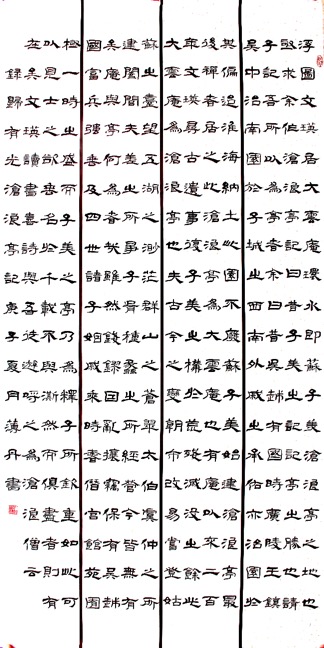 浮圖文瑛居大雲庵環水即蘇子美滄浪亭之地也
亟求余作滄浪亭記曰昔子美之記記亭之勝也請
子記吾所以為亭者余曰昔吳越有國時廣陵王鎮
吳中治園於子城之西南其外戚孫承佑亦治園於
其偏迨淮海納土此園不廢蘇子美始建滄浪亭最
後禪者居之此滄浪亭為大雲庵也有庵以來二百
年文瑛尋古遺事復子美之構於荒殘滅沒之餘此
大雲庵為滄浪亭也夫古今之變朝市改易嘗登姑
蘇之臺望五湖之渺茫群山之蒼翠太伯虞仲之所
建闔閭夫差之所爭子胥種蠡之所經營今皆無有
矣庵與亭何為者哉雖然錢鏐因亂攘竊保有吳越
國富兵強垂及四世諸子姻戚乘時奢僭宮館苑囿
極一時之盛而子美之亭乃為釋子所欽重如此可
以見士之欲垂名於千載不與澌然而俱盡者則有
在矣文瑛讀書喜詩與吾徒遊呼之為滄浪僧云
錄歸有光滄浪亭記庚子夏月薄丹書